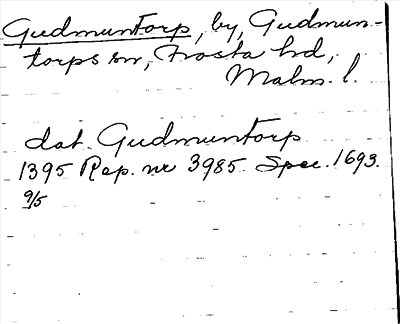 Gudmuntorp, by, Gudmun-
torps sn, Frosta hd,
Malm. l.
dat. Gudmuntorp
1395 Rep. nr 3985. Spec. 1693.
9/5